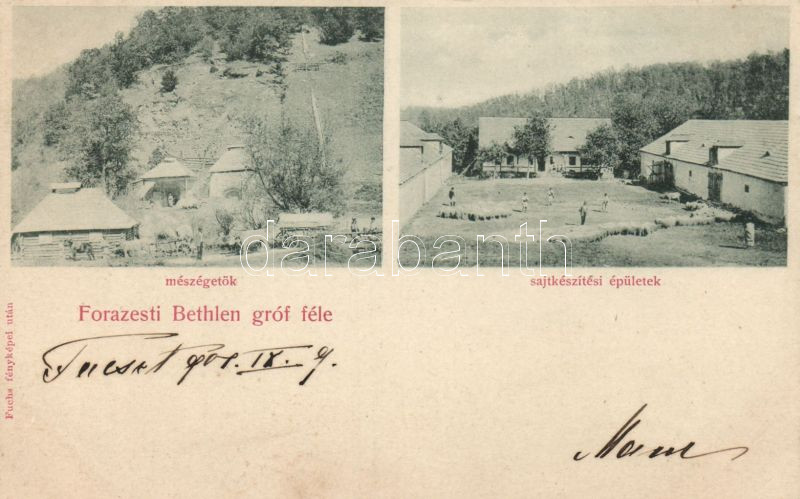 mészégetők
sajtkészítési épületek
Forazesti Bethlen gróf féle
Facset 901. IX. 9.
Fuchs fényképei után
darabanth